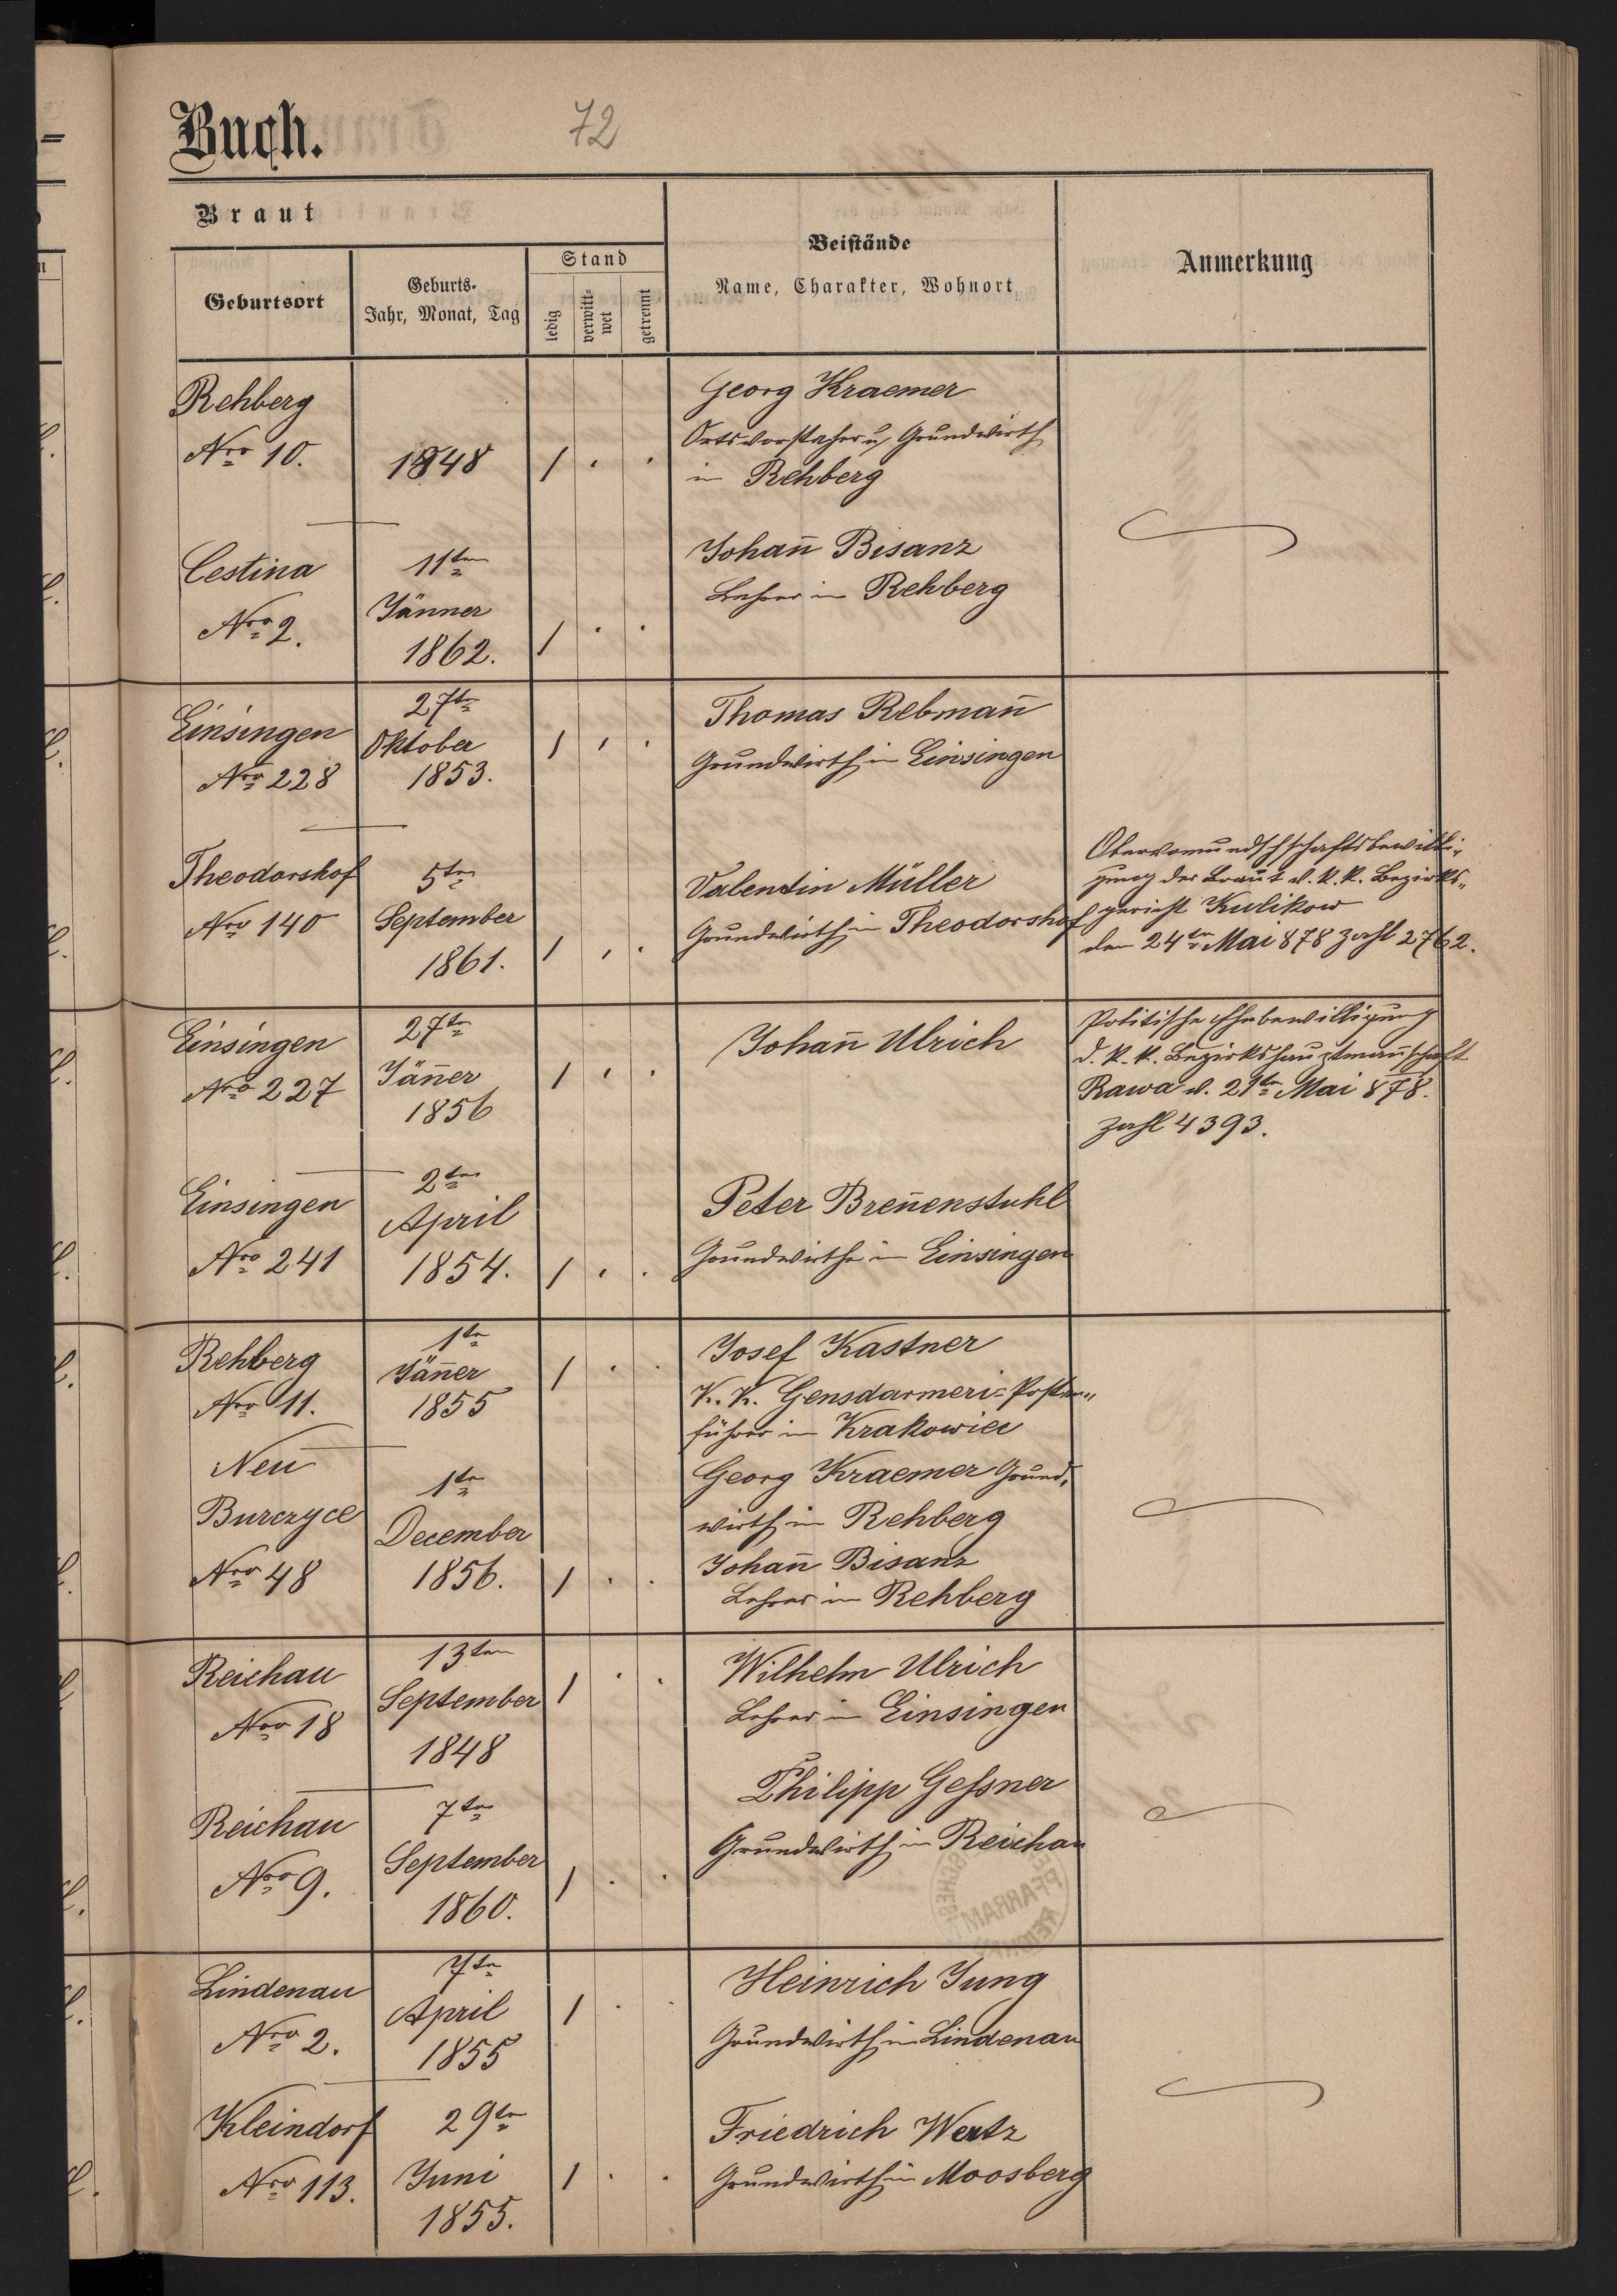 Buch.
72
Braut
Beistände
Name, Charakter, Wohnort
Anmerkung
Geburtsort
Geburts-
Jahr, Monat, Tag
Stand
ledig
verwitt-
wet
getrennt
Rehberg
Nro 10.
1848
1 . .
Georg Kraemer
Ortsvorsteher u, Grundwirth
in Rehberg
Cestina
Nro 2.
11ten
Jänner
1862.
1 . .
Johan̄ Bisanz
Lehrer in Rehberg
Einsingen
Nro 228
27ten
Oktober
1853.
1 . .
Thomas Rebman̄
Grundwirth in Einsingen
Theodorshof
Nro 140
5ten
September
1861.
1 . .
Valentin Müller
Grundwirth in Theodorshof
Obervormundschschaftsbewilli-
gung der Braut d. k. k. Bezirks-
gericht Kulikow
den 24ten Mai 878 Zahl 2762.
Einsingen
Nro 227
27ten
Jän̄er
1856
1 . .
Johan̄ Ulrich
Politische Ehebewilligung
d. k. k. Bezirkshauptman̄schaft
Rawa d. 21ten Mai 878.
Zahl 4393.
Einsingen
Nro 241
2ten
April
1854.
1 . .
Peter Bren̄enstuhl
Grundwirthe in Einsingen
Rehberg
Nro 11.
1ten
Jän̄er
1855
1 . .
Josef Kastner
K. K. Gensdarmeri-Posten-
führer in Krakowiec
Neu
Burczyce
Nro 48
1ten
December
1856.
1 . .
Georg Kraemer Grund-
wirth in Rehberg
Johan̄ Bisanz
Lehrer in Rehberg
Reichau
Nro 18
13ten
September
1848
1 . .
Wilhelm Ulrich
Lehrer in Einsingen
Reichau
Nro 9.
7ten
September
1860.
1 . .
Philipp Gessner
Grundwirth in Reichau
Lindenau
Nro 2.
7ten
April
1855
1 . .
Heinrich Jung
Grundwirth in Lindenau
Kleindorf
Nro 113.
29ten
Juni
1855.
1 . .
Friedrich Wertz
Grundwirth in Moosberg